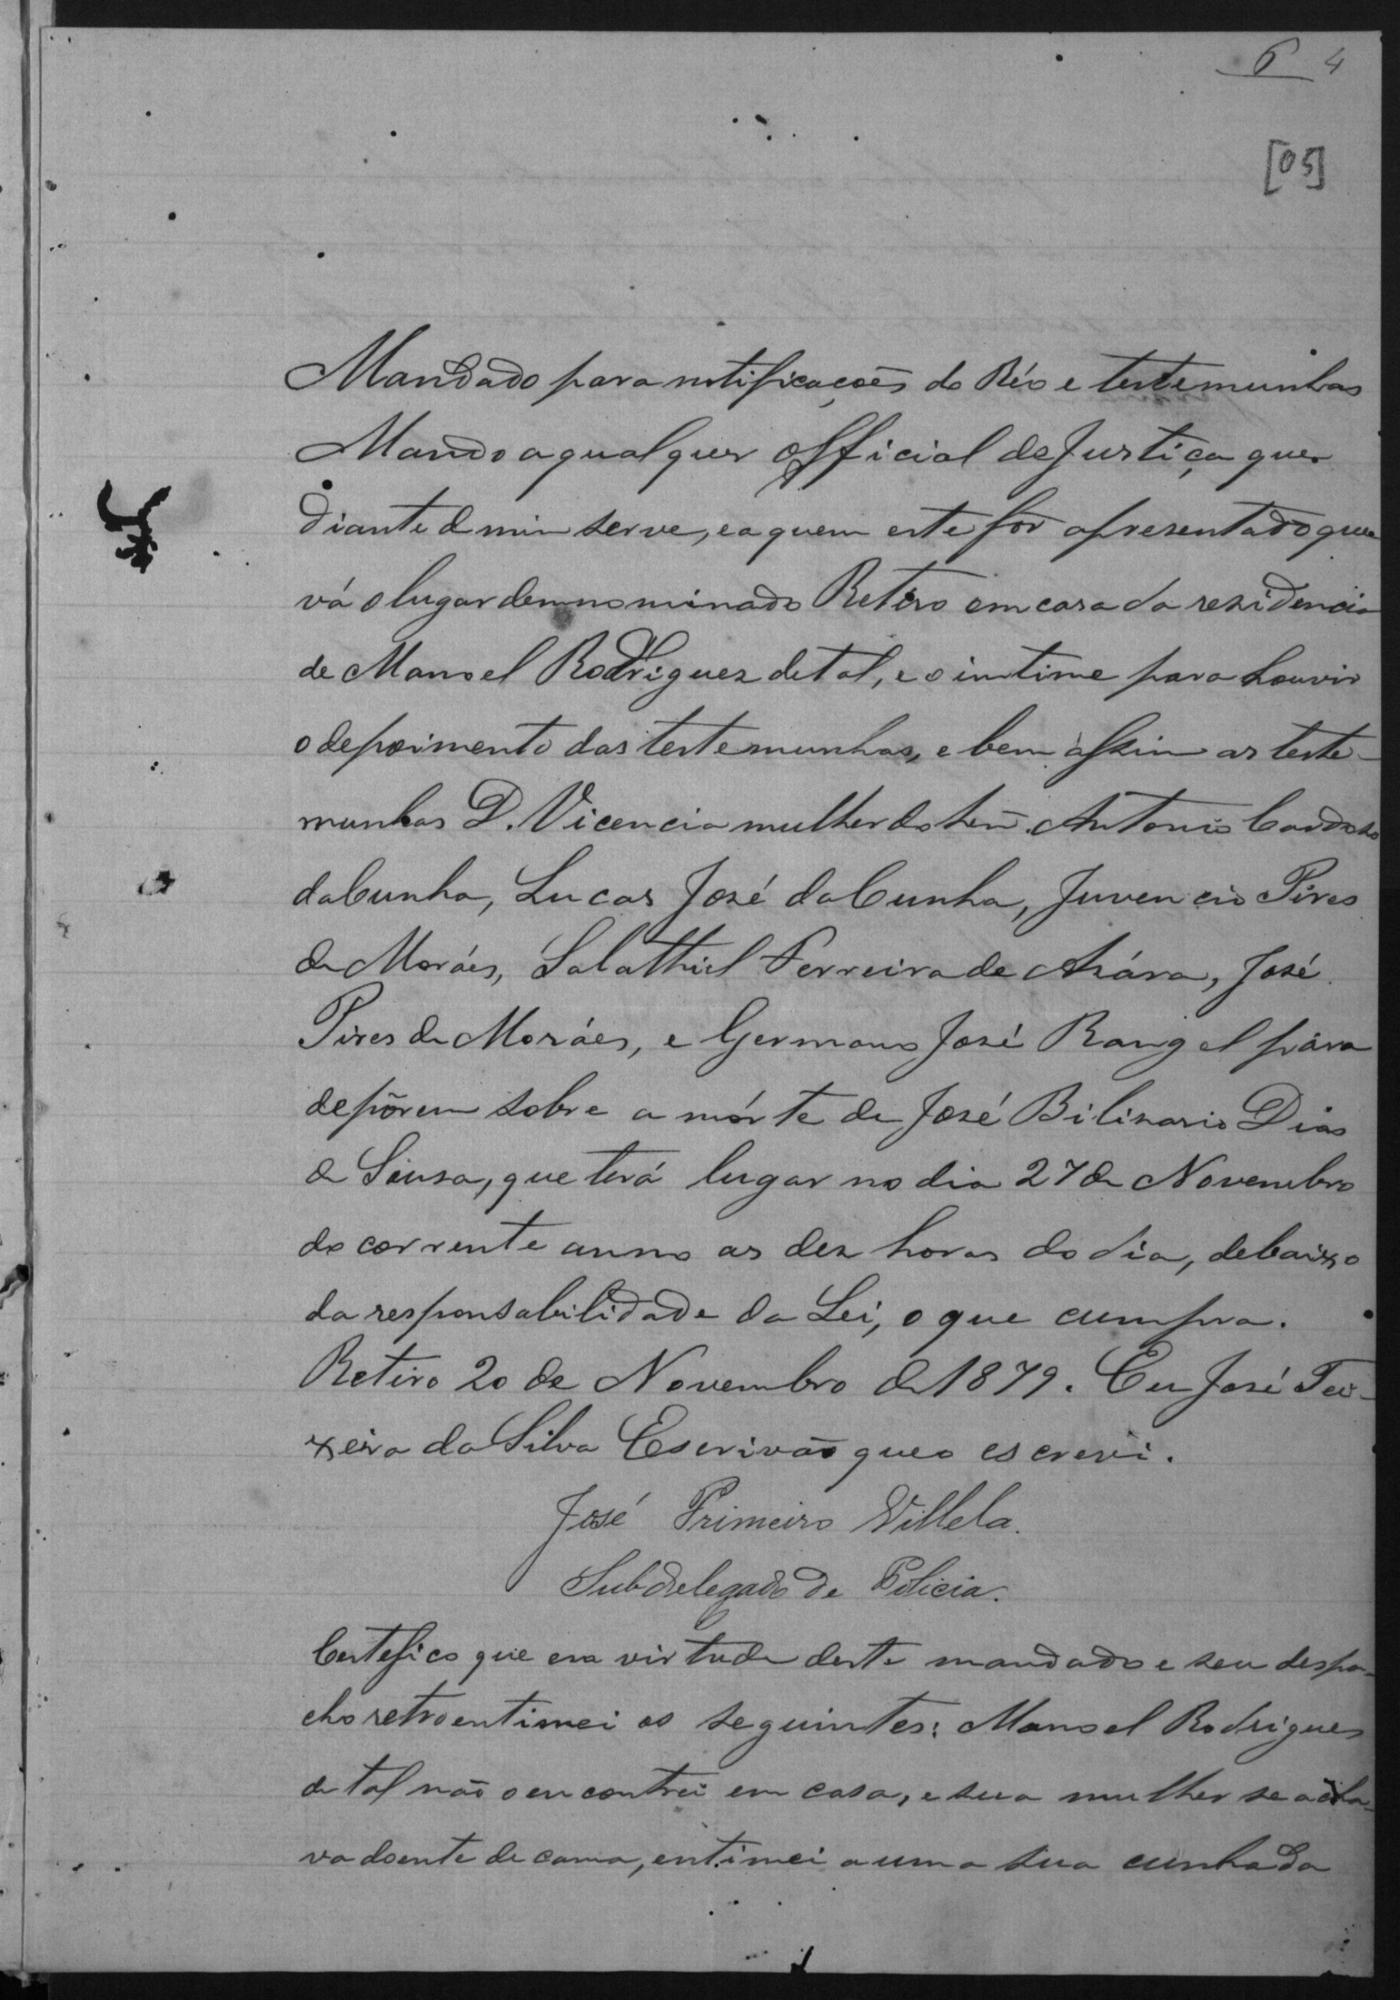 6 4
[05]
Mandado para notificações do Réo e testemunhas
Mando a qualquer official de Justiça que
diante de mim serve, e a quem este fôr apresentado que
vá o lugar demnominado Retiro em casa da rezidencia
de Manoel Rodriguez de tal, e o intime para houvir
o depoimento das testemunhas, e bem assim as teste-
munhas D. Vicencia mulher do Antonio Cardozo
da Cunha, Lucas José da Cunha, Juvencio Pires
de Moráes, Salathiel Ferreira de Azára, José
Pires de Moráes, e Germano José Rangel pára
depôrem sobre a mórte de José Bilizario Dias
de Sousa, que terá lugar no dia 27 de Novembro
do corrente anno as dez horas do dia, debaixo
da responsabilidade da Lei, o que cumpra.
Retiro 20 de Novembro de 1879. Eu José Tei-
xeira da Silva Escrivão que o escrevi.
José Primeiro Villela.
Subdelegado de Policia.
Certefico que em virtude deste mandado e seu despa-
cho retro entimei os seguintes: Manoel Rodrigues
de tal não o encontrei em casa, e sua mulher se acha-
va doente de cama, entimei a uma sua cunhada